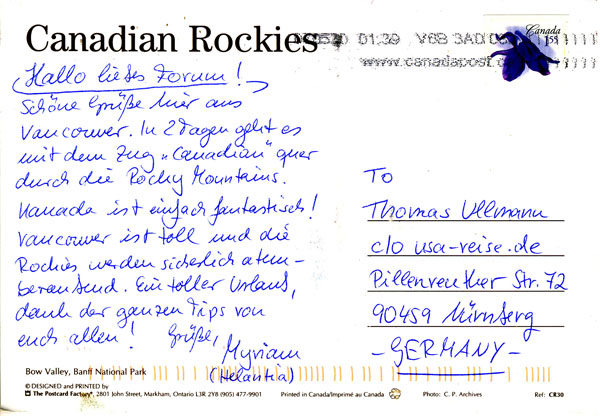 Canadian Rockies
01:30 V6B 3A0
www.canadapost.
Canada
1.55
Hallo liebes Forum!
Schöne Grüße hier aus
Vancouver. In 2 Tagen geht es
mit dem Zug „Canadian" quer
durch die Rocky Mountains.
Kanada ist einfach fantastisch!
Vancouver ist toll und die
Rockies werden sicherlich atem-
beraubend. Ein toller Urlaub,
dank der ganzen Tips von
euch allen! Grüße,
Myriam
(Helantia)
TO
Thomas Ullmann
c/o usa-reise.de
Pillenreuther Str. 72
90459 Nürnberg
- GERMANY -
Bow Valley, Banff National Park
© DESIGNED and PRINTED by
The Postcard Factory®, 2801 John Street, Markham, Ontario L3R 2Y8 (905) 477-9901
Printed in Canada/Imprimé au Canada
Photo: C. P. Archives
Ref: CR30